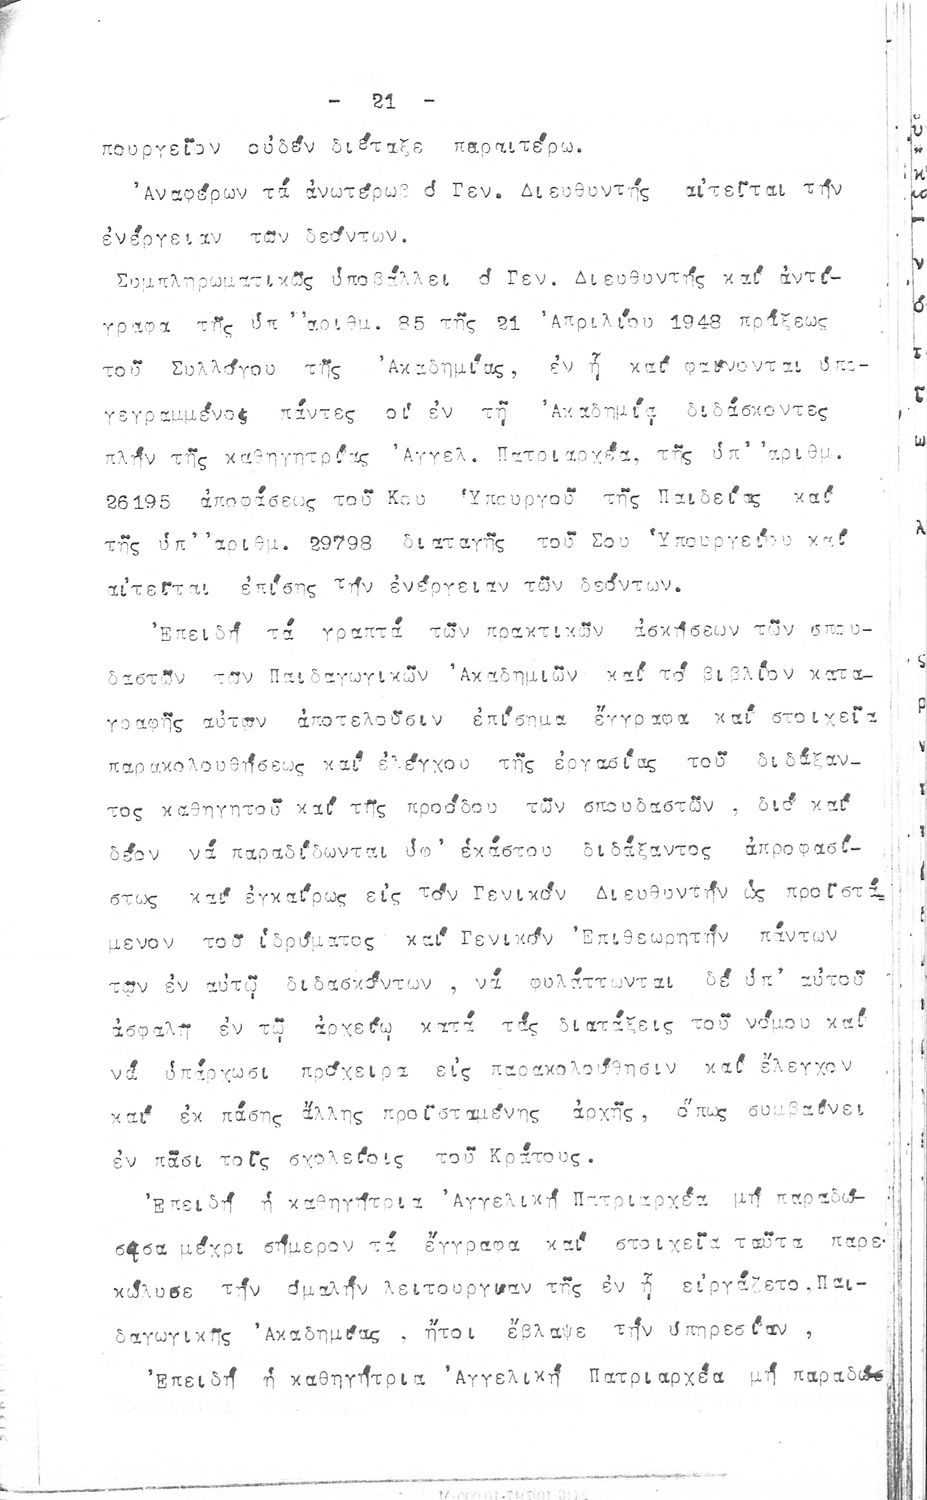 - 21 -
πουργεῖον οὐδέν διέταξε παραιτέρω.
Ἀναφέρων τά ἀνωτέρω ὁ Γεν. Διευθυντής αἰτεῖται τήν
ἐνέργειαν τῶν δεόντων.
Συμπληρωματικῶς ὑποβάλλει ὁ Γεν. Διευθυντής καί ἀντί-
γραφα τῆς ὑπ' ἀριθμ. 85 τῆς 21 Ἀπριλίου 1948 πράξεως
τοῦ Συλλόγου τῆς Ἀκαδημίας, ἐν ᾗ καί φαίνονται ὑπο-
γεγραμμένοι πάντες οἱ ἐν τῇ Ἀκαδημίᾳ διδάσκοντες
πλήν τῆς καθηγητρίας Ἀγγελ. Πατριαρχέα, τῆς ὑπ' ἀριθμ.
26195 ἀποφάσεως τοῦ Κου Ὑπουργοῦ τῆς Παιδείας καί
τῆς ὑπ' ἀριθμ. 29798 διαταγῆς τοῦ Σου Ὑπουργείου καί
αἰτεῖται ἐπίσης τήν ἐνέργειαν τῶν δεόντων.
Ἐπειδή τά γραπτά τῶν πρακτικῶν ἀσκήσεων τῶν σπου-
δαστῶν τῶν Παιδαγωγικῶν Ἀκαδημιῶν καί τό βιβλίον κατα-
γραφῆς αὐτῶν ἀποτελοῦσιν ἐπίσημα ἔγγραφα καί στοιχεῖα
παρακολουθήσεως καί ἐλέγχου τῆς ἐργασίας τοῦ διδάξαν-
τος καθηγητοῦ καί τῆς προόδου τῶν σπουδαστῶν , διό καί
δέον νά παραδίδωνται ὑφ' ἑκάστου διδάξαντος ἀπροφασί-
στως καί ἐγκαίρως εἰς τόν Γενικόν Διευθυντήν ὡς προϊστά-
μενον τοῦ ἱδρύματος καί Γενικόν Ἐπιθεωρητήν πάντων
τῶν ἐν αὐτῷ διδασκόντων , νά φυλάττωνται δέ ὑπ' αὐτοῦ
ἀσφαλῆ ἐν τῷ ἀρχείῳ κατά τάς διατάξεις τοῦ νόμου καί
νά ὑπάρχωσι πρόχειρα εἰς παρακολούθησιν καί ἔλεγχον
καί ἐκ πάσης ἄλλης προϊσταμένης ἀρχῆς, ὅπως συμβαίνει
ἐν πᾶσι τοῖς σχολείοις τοῦ Κράτους.
Ἐπειδή ἡ καθηγήτρια Ἀγγελική Πατριαρχέα μή παραδώ-
σασα μέχρι σήμερον τά ἔγγραφα καί στοιχεῖα ταῦτα παρε-
κώλυσε τήν ὁμαλήν λειτουργίαν τῆς ἐν ᾗ εἰργάζετο Παι-
δαγωγικῆς Ἀκαδημίας , ἤτοι ἔβλαψε τήν ὑπηρεσίαν ,
Ἐπειδή ἡ καθηγήτρια Ἀγγελική Πατριαρχέα μή παραδώσ